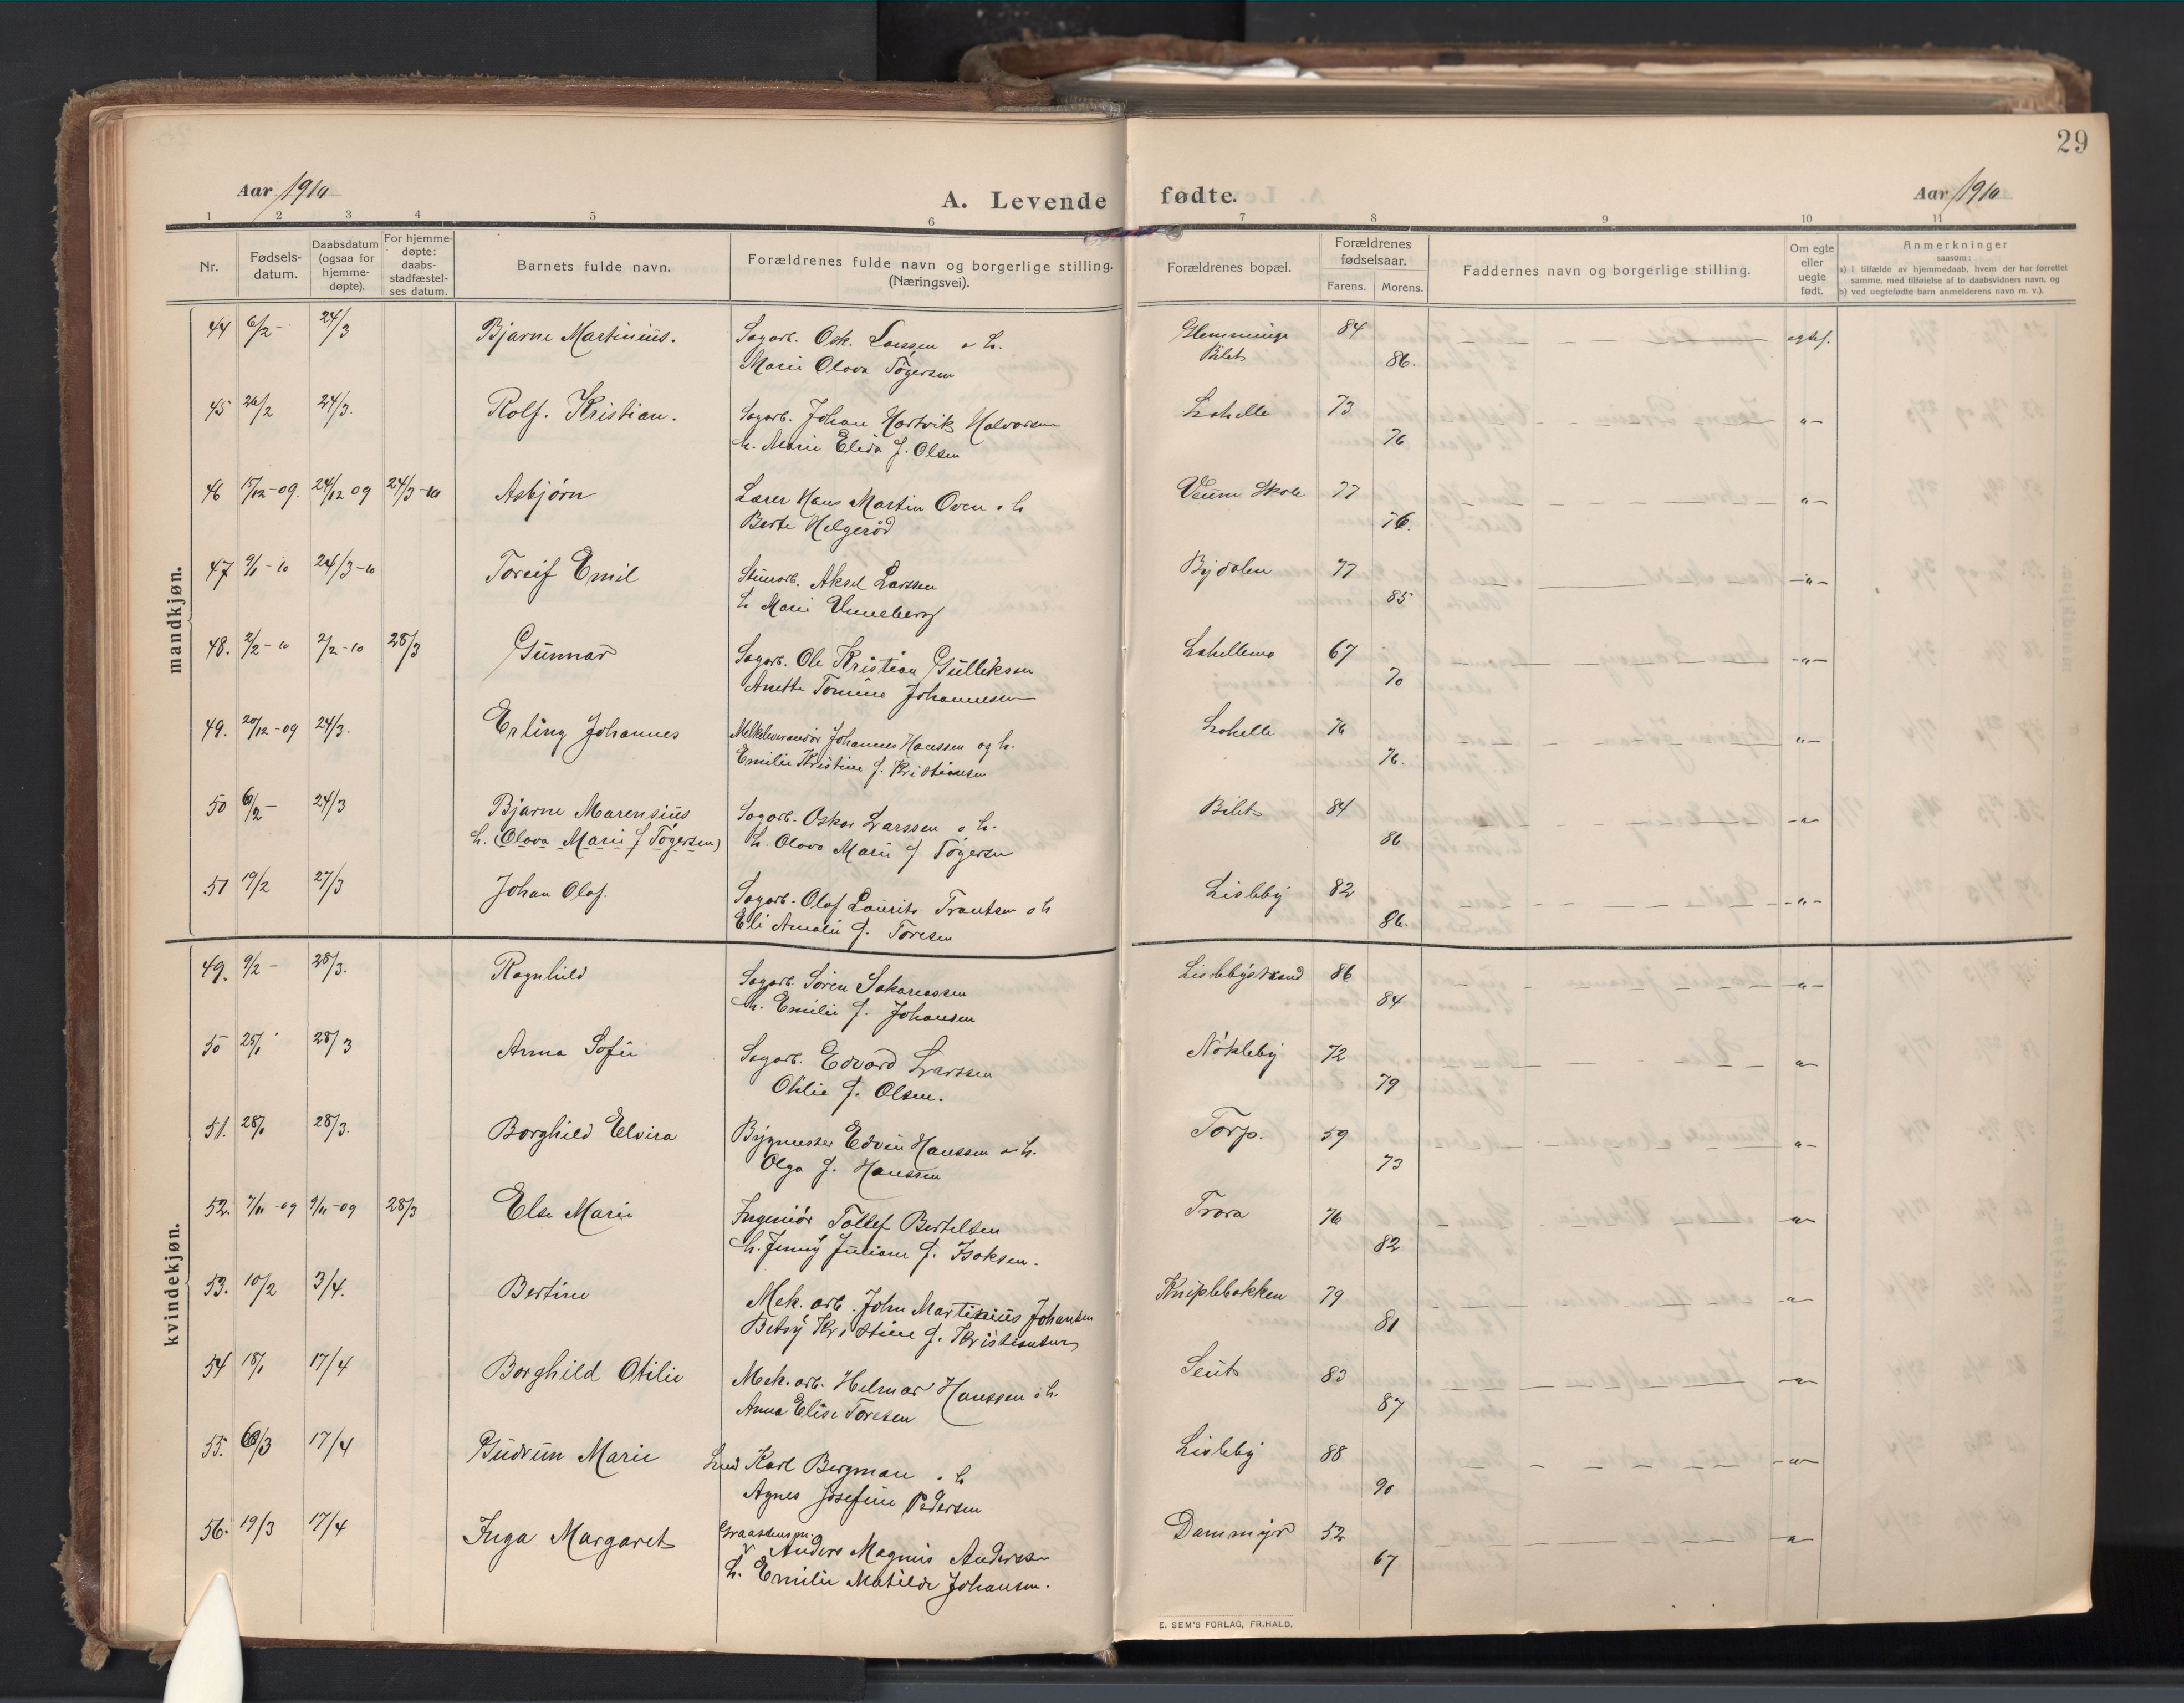 29
Aar 1910
A. Levende fødte.
Aar 1910
1 2 3 4 5 6 7 8 9 10 11
Nr.
Fødsels-
datum.
Daabsdatum
(ogsaa for
hjemme-
døpte).
For hjemme-
døpte:
daabs-
stadfæstel-
ses datum.
Barnets fulde navn.
Forældrenes fulde navn og borgerlige stilling.
(Næringsvei).
Forældrenes bopæl.
Forældrenes
fødselsaar.
Farens. Morens.
Faddernes navn og borgerlige stilling.
Om egte
eller
uegte
født.
Anmerkninger
saasom:
a) i tilfælde av hjemmedaab, hvem der har forrettet
samme, med tilføielse af to daabsvidners navn, og
b) ved uegtefødte barn anmelderens navn m. v.).
mandkjøn.
44 6/2 - 24/3 Bjarne Martinius. Sagarb. Osk. Larssen o h. Glemminge 84 egtef.
Marie Olava Tøgersen Bilet 86.
45 26/2 24/3. Rolf. Kristian. Sagarb. Johan Hartvik Halvorsen Lahelle 73 "-
h. Marie Elida f. Olsen 76
46 15/12-09. 24/12 09 24/3-10 Asbjørn Lærer Hans Martin Oven o h Veum Skole 77 "-
Berte Helgerød 76.
47 9/1-10 24/3-10 Toreif Emil Stuearb. Aksel Larssen Bydalen 77 -"-
h Marie Unneberg 85
48. 2/2-10 2/2-10 28/3 Gunnar Sagarb. Ole Kristian Gulliksen Lahellemo 67 -"-
Anette Tomine Johannesen 70
49. 20/12-09 24/3. Erling Johannes Melkeleverandør Johannes Hanssen og h. Lahelle 76 "-
Emilie Kristine f. Kristiansen 76.
50 6/2- 24/3 Bjarne Marensius Sagarb. Oskar Larssen o h. Bilet 84 -"-
h. (Olava Marie f Tøgersen) h. Olava Marie f Tøgersen 86
51 19/2 27/3 Johan Olaf. Sagarb. Olaf Laurits Trantsen o h Lisleby 82 -"-
Eli Amalie f. Toresen 86.
kvindekjøn.
49. 9/2 - 28/3. Ragnhild Sagarb. Søren Sakariassen Lislebystrand 86 -"-
h. Emilie f. Johansen 84
50 25/1 28/3 Anna Sofie Sagarb. Edvard Larssen Nøkleby 72 "-
Otilie f. Olsen. 79
51. 28/1 28/3. Borghild Elvira Bygmester Edvin Hanssen o h. Torp. 59 "-
Olga f. Hanssen 73
52. 7/11-09 9/11-09 28/3 Else Marie Ingeniør Tollef Bertelsen Trara 76 -"-
h. Jenny Juliane f. Isaksen. 82
53. 10/2 3/4. Bertine Mek. arb. John Martinius Johansen Kniplebakken 79 -"-
Betsy Kristine f. Kristiansen 81
54 18/1 17/4 Borghild Otilie Mek. arb. Helmar Hanssen o h. Seut 83 -"-
Anna Elise Toresen 87
55. 17/4 Gudrun Marie Karl Bergman o h Lisleby 88 -"-
Agnes Josefine Pedersen 90
56. 19/3 17/4 Inga Margaret Anders Magnus Anderssen Dammyr 52 -"-
h. Emilie Matilde Johansen. 67
E. SEM'S FORLAG, FR.HALD.